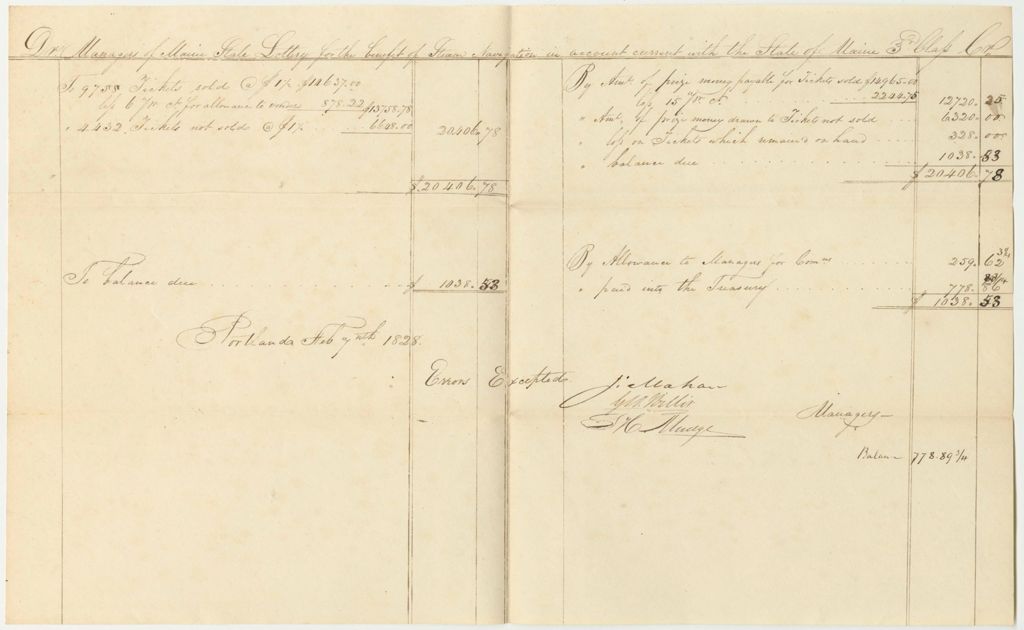 Dr Managers of Maine State Lottery for the benefit of Steam Navigation in account current with the State of Maine 3d Class Cr
To 9758 Tickets sold @ $1½ $14637.00
less 6 pr ct for allowance to 878.22 $13758.78
" 4432 Tickets not sold @ $1½ 6648.00 20406.78
$20406.78
By Amt. of prize money payable for Tickets sold $14965.00
less 15 pr ct 2244.75 12720.25
" Amt. of prize money drawn to Tickets not sold 6320.00
" loss on Tickets which remain'd on hand 328.00
" balance due 1038.53
$20406.78
To balance due $1038.53
By Allowance to Managers for Comns 259.
" paid into the Treasury 778.
$1038.53
Portland Feb 7th 1828.
Errors Excepted
J. McMahan
Willis
Mudge
Managers
Balan 778.89¾